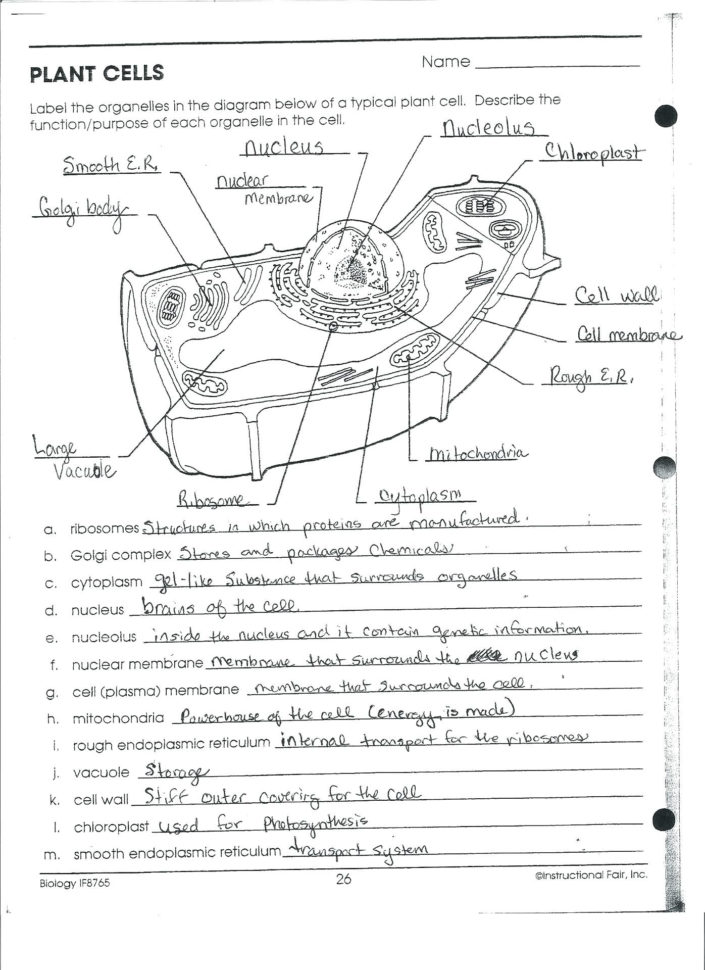 Name
PLANT CELLS
Label the organelles in the diagram below of a typical plant cell. Describe the
function/purpose of each organelle in the cell.
Nucleolus
nucleus
Chloroplast
Smooth E.R.
nuclear
Membrane
Golgi body
Cell wall
Cell membrane
Rough E.R.
Large
Vacuole
Mitochondria
Ribosome
Cytoplasm
a. ribosomes Structures in which proteins are manufactured.
b. Golgi complex Stores and packages Chemicals
c. cytoplasm gel-like Substance that surrounds organelles
d. nucleus brains of the cell.
e. nucleolus inside the nucleus and it contain genetic information.
f. nuclear membrane membrane that surrounds the nucleus
g. cell (plasma) membrane membrane that surrounds the cell.
h. mitochondria Powerhouse of the cell (energy is made)
i. rough endoplasmic reticulum internal transport for the ribosomes
j. vacuole Storage
k. cell wall Stiff outer covering for the cell
l. chloroplast used for Photosynthesis
m. smooth endoplasmic reticulum transport system
Biology IF8765
26
©Instructional Fair, Inc.